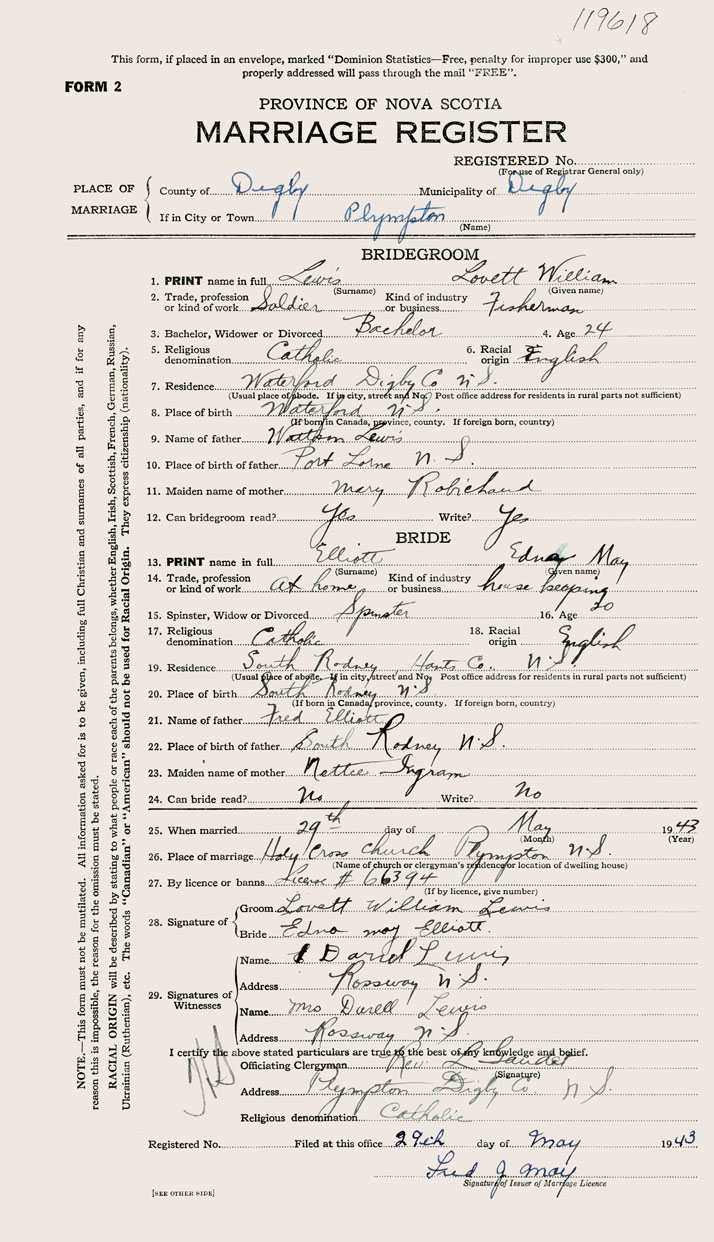 119618
This form, if placed in an envelope, marked "Dominion Statistics—Free, penalty for improper use $300," and
properly addressed will pass through the mail "FREE".
FORM 2
PROVINCE OF NOVA SCOTIA
MARRIAGE REGISTER
REGISTERED No.
(For use of Registrar General only)
PLACE OF MARRIAGE
County of Digby Municipality of Digby
If in City or Town Plympton
(Name)
BRIDEGROOM
1. PRINT name in full Lewis Lovett William
(Surname) (Given name)
2. Trade, profession or kind of work Soldier Kind of industry or business Fisherman
3. Bachelor, Widower or Divorced Bachelor 4. Age 24
5. Religious denomination Catholic 6. Racial origin English
7. Residence Waterford Digby Co N.S.
(Usual place of abode. If in city, street and No. Post office address for residents in rural parts not sufficient)
8. Place of birth Waterford N.S.
(If born in Canada, province, county. If foreign born, country)
9. Name of father Lewis
10. Place of birth of father Port Lorne N.S.
11. Maiden name of mother Mary Robichaud
12. Can bridegroom read? Yes Write? Yes
BRIDE
13. PRINT name in full Elliott Edna May
(Surname) (Given name)
14. Trade, profession or kind of work at home Kind of industry or business house keeping
15. Spinster, Widow or Divorced Spinster 16. Age 20
17. Religious denomination Catholic 18. Racial origin English
19. Residence South Rodney, Hants Co. N.S.
(Usual place of abode. If in city, street and No. Post office address for residents in rural parts not sufficient)
20. Place of birth South Rodney N.S.
(If born in Canada, province, county. If foreign born, country)
21. Name of father Fred Elliott
22. Place of birth of father South Rodney N.S.
23. Maiden name of mother Nettie Ingram
24. Can bride read? No Write? No
25. When married 29th day of May 1943
(Month) (Year)
26. Place of marriage Holy Cross Church Plympton N.S.
(Name of church or clergyman's residence or location of dwelling house)
27. By licence or banns License # 66394
(If by licence, give number)
28. Signature of
Groom Lovett William Lewis
Bride Edna may Elliott.
29. Signatures of Witnesses
Name Lewis
Address Rossway N.S.
Name Mrs Darell Lewis
Address Rossway N.S.
I certify the above stated particulars are true to the best of my knowledge and belief.
Officiating Clergyman Rev. L Gaudet
(Signature)
Address Plympton Digby Co. N S.
Religious denomination Catholic
Registered No. Filed at this office 29th day of May 1943
Fred J May
Signature of Issuer of Marriage Licence
[SEE OTHER SIDE]
NOTE.—This form must not be mutilated. All information asked for is to be given, including full Christian and surnames of all parties, and if for any
reason this is impossible, the reason for the omission must be stated.
RACIAL ORIGIN will be described by stating to what people or race each of the parents belongs, whether English, Irish, Scottish, French, German, Russian,
Ukrainian (Ruthenian), etc. The words "Canadian" or "American" should not be used for Racial Origin. They express citizenship (nationality).